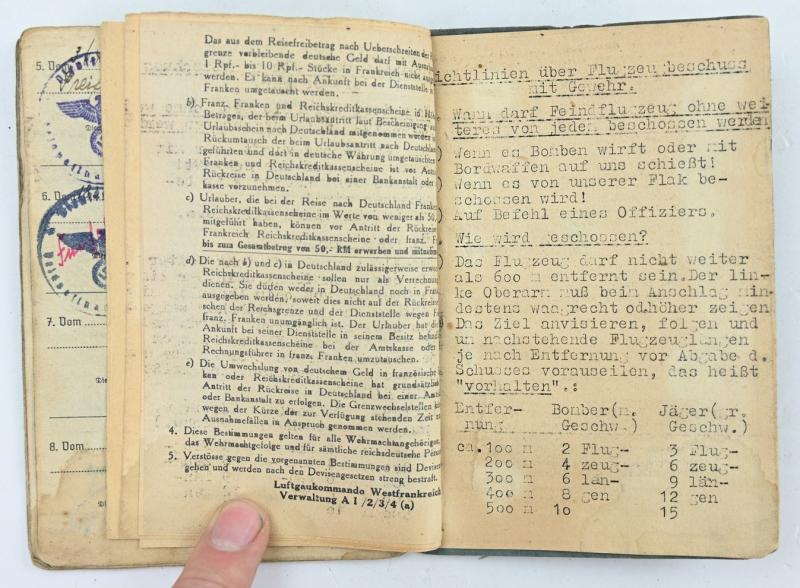 5. Vom
6. Vom
7. Vom
8. Vom
Das aus dem Reisefreibetrag nach Ueberschreiten der
grenze verbleibende deutsche Geld darf mit
1 Rpf.- bis 10 Rpf.- Stücke in Frankreich nicht
werden. Es kann nach Ankunft bei der Dienststelle
Franken umgetauscht werden.
b) Franz. Franken und Reichskreditkassenscheine in
Betrages, der beim Urlaubsantritt laut Bescheinigung
Urlaubsschein nach Deutschland mitgenommen worden
Rückumtausch der beim Urlaubsantritt nach Deutschland
geführten und dort in deutsche Währung umgetauschten
Franken und Reichskreditkassenscheine ist vor
Rückreise in Deutschland bei einer Bankanstalt oder
kasse vorzunehmen.
c) Urlauber, die bei der Reise nach Deutschland
Reichskreditkassenscheine im Werte von weniger als 50,
mitgeführt haben, können vor Antritt der Rückreise
Frankreich Reichskreditkassenscheine oder franz.
bis zum Gesamtbetrag von 50,- RM erwerben und
d) Die nach b) und c) in Deutschland zulässigerweise
Reichskreditkassenscheine sollen nur als
dienen. Sie düfen weder in Deutschland noch in
ausgegeben werden, soweit dies nicht auf der Rückreise
schen der Reichsgrenze und der Dienststelle wegen
franz. Franken unumgänglich ist. Der Urlauber hat
Ankunft bei seiner Dienststelle in seinem Besitz
Reichskreditkassenscheine bei der Amtskasse oder
Rechnungsführer in franz. Franken umzutauschen.
e) Die Umwechslung von deutschem Geld in französische
ken oder Reichskreditkassenscheine hat
Antritt der Rückreise in Deutschland bei einer
oder Bankanstalt zu erfolgen. Die Grenzwechselstellen
wegen der Kürze der zur Verfügung stehenden Zeit
Ausnahmefällen in Anspruch genommen werden.
4. Diese Bestimmungen gelten für alle Wehrmachtangehörigen,
das Wehrmachtgefolge und für sämtliche reichsdeutsche
5. Verstösse gegen die vorgenannten Bestimmungen sind
gehen und werden nach den Devisengesetzen streng bestraft.
Luftgaukommando Westfrankreich
Verwaltung A 1/2/3/4 (a)
chtlinien über Flugzeu beschuss
mit Gewehr.
Wann darf Feindflugzeug ohne wei-
teres von jedem beschossen werden
Wenn es Bomben wirft oder mit
Bordwaffen auf uns schießt!
Wenn es von unserer Flak be-
schossen wird!
Auf Befehl eines Offiziers.
Wie wird geschossen?
Das Flugzeug darf nicht weiter
als 600 m entfernt sein.Der lin-
ke Oberarm muß beim Anschlag min-
destens waagrecht od.höher zeigen
Das Ziel anvisieren, folgen und
um nachstehende Flugzeuglängen
je nach Entfernung vor Abgabe d.
Schusses vorauseilen, das heißt
"vorhalten".:
Entfer- Bomber(m. Jäger(gr.
nung Geschw.) Geschw.)
ca.100 m 2 Flug- 3 Flug-
200 m 4 zeug- 6 zeug-
300 m 6 län- 9 län-
400 m 8 gen 12 gen
500 m 10 15